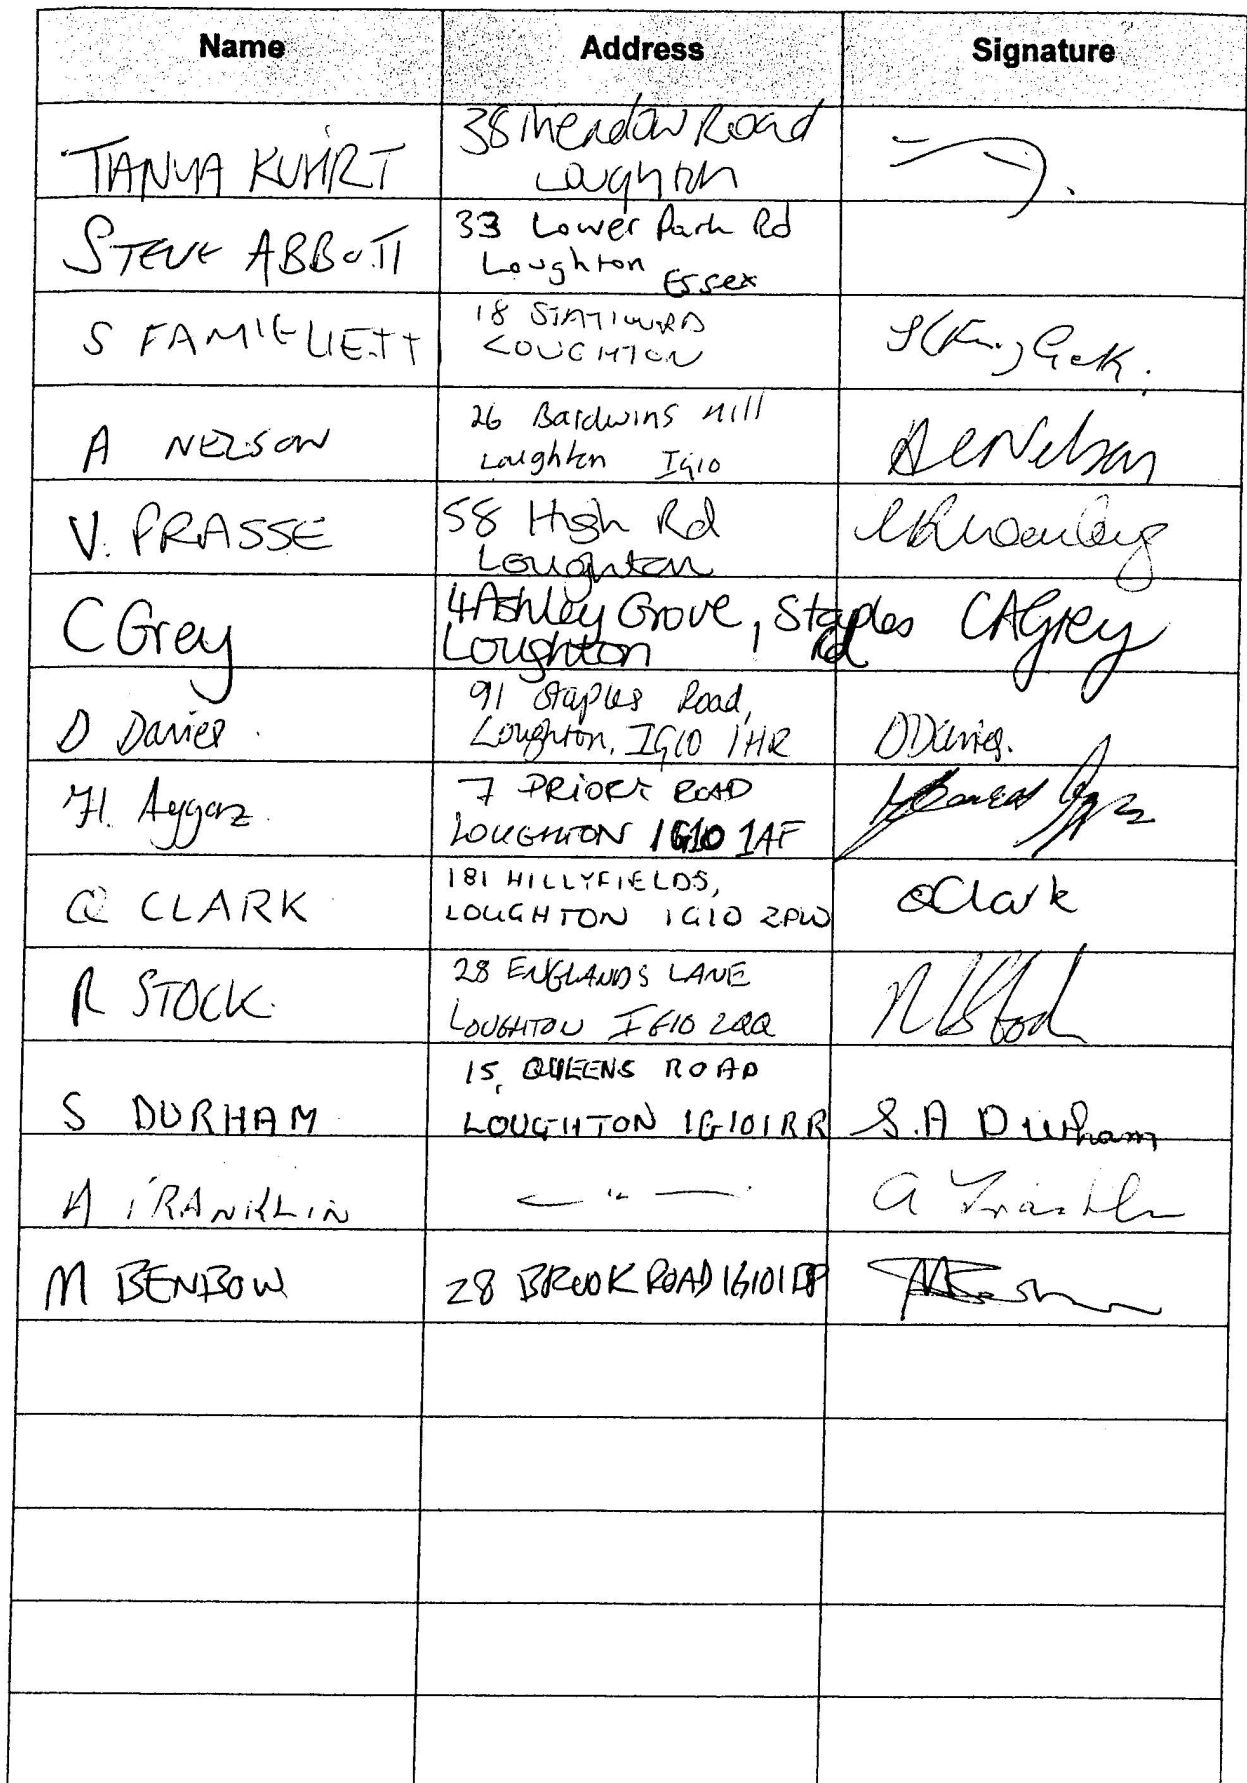 Name Address Signature
TANYA KUHRT
38 Meadow Road
Loughton
STEVE ABBOTT
33 Lower Park Rd
Loughton Essex
S FAMIGLIETT
18
LOUGHTON
A NELSON
26 Baldwins Hill
Loughton IG10
A Nelson
V. PRASSE
58 High Rd
Loughton
C Grey
4 Ashley Grove, Staples Rd
Loughton
CAGrey
D Davies
91 Staples Road,
Loughton, IG10 1HR
D Davies.
H. Aygaz
7 PRIORY ROAD
LOUGHTON IG10 1AF
Q CLARK
181 HILLYFIELDS,
LOUGHTON IG10 2PW
QClark
R STOCK
28 ENGLANDS LANE
LOUGHTON IG10 2QQ
S DURHAM
15, QUEENS ROAD
LOUGHTON IG10 1RR
S.A Durham
A FRANKLIN
— " —
A Franklin
M BENBOW
28 BROOK ROAD IG10 1BP